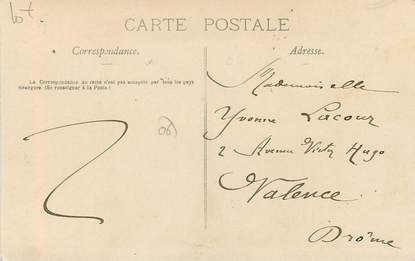 lot
CARTE POSTALE
Correspondance.
La Correspondance au recto n'est pas acceptée par tous les pays
étrangers. (Se renseigner à la Poste.)
Adresse.
Mademoiselle
Yvonne Lacour
2 Avenue Victor Hugo
Valence
Drôme